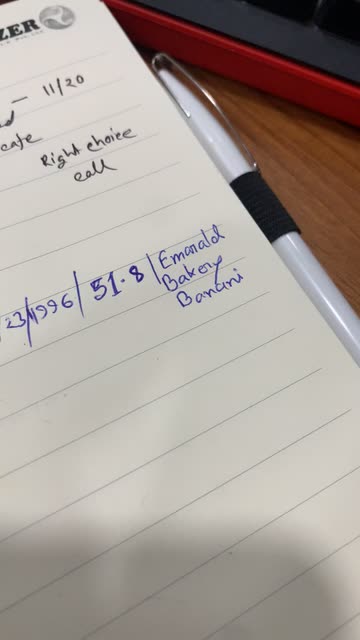 ZER
11/20
cate
Right choice
call
23/1996/ 51.8 | Emarald
Bakery
Banani